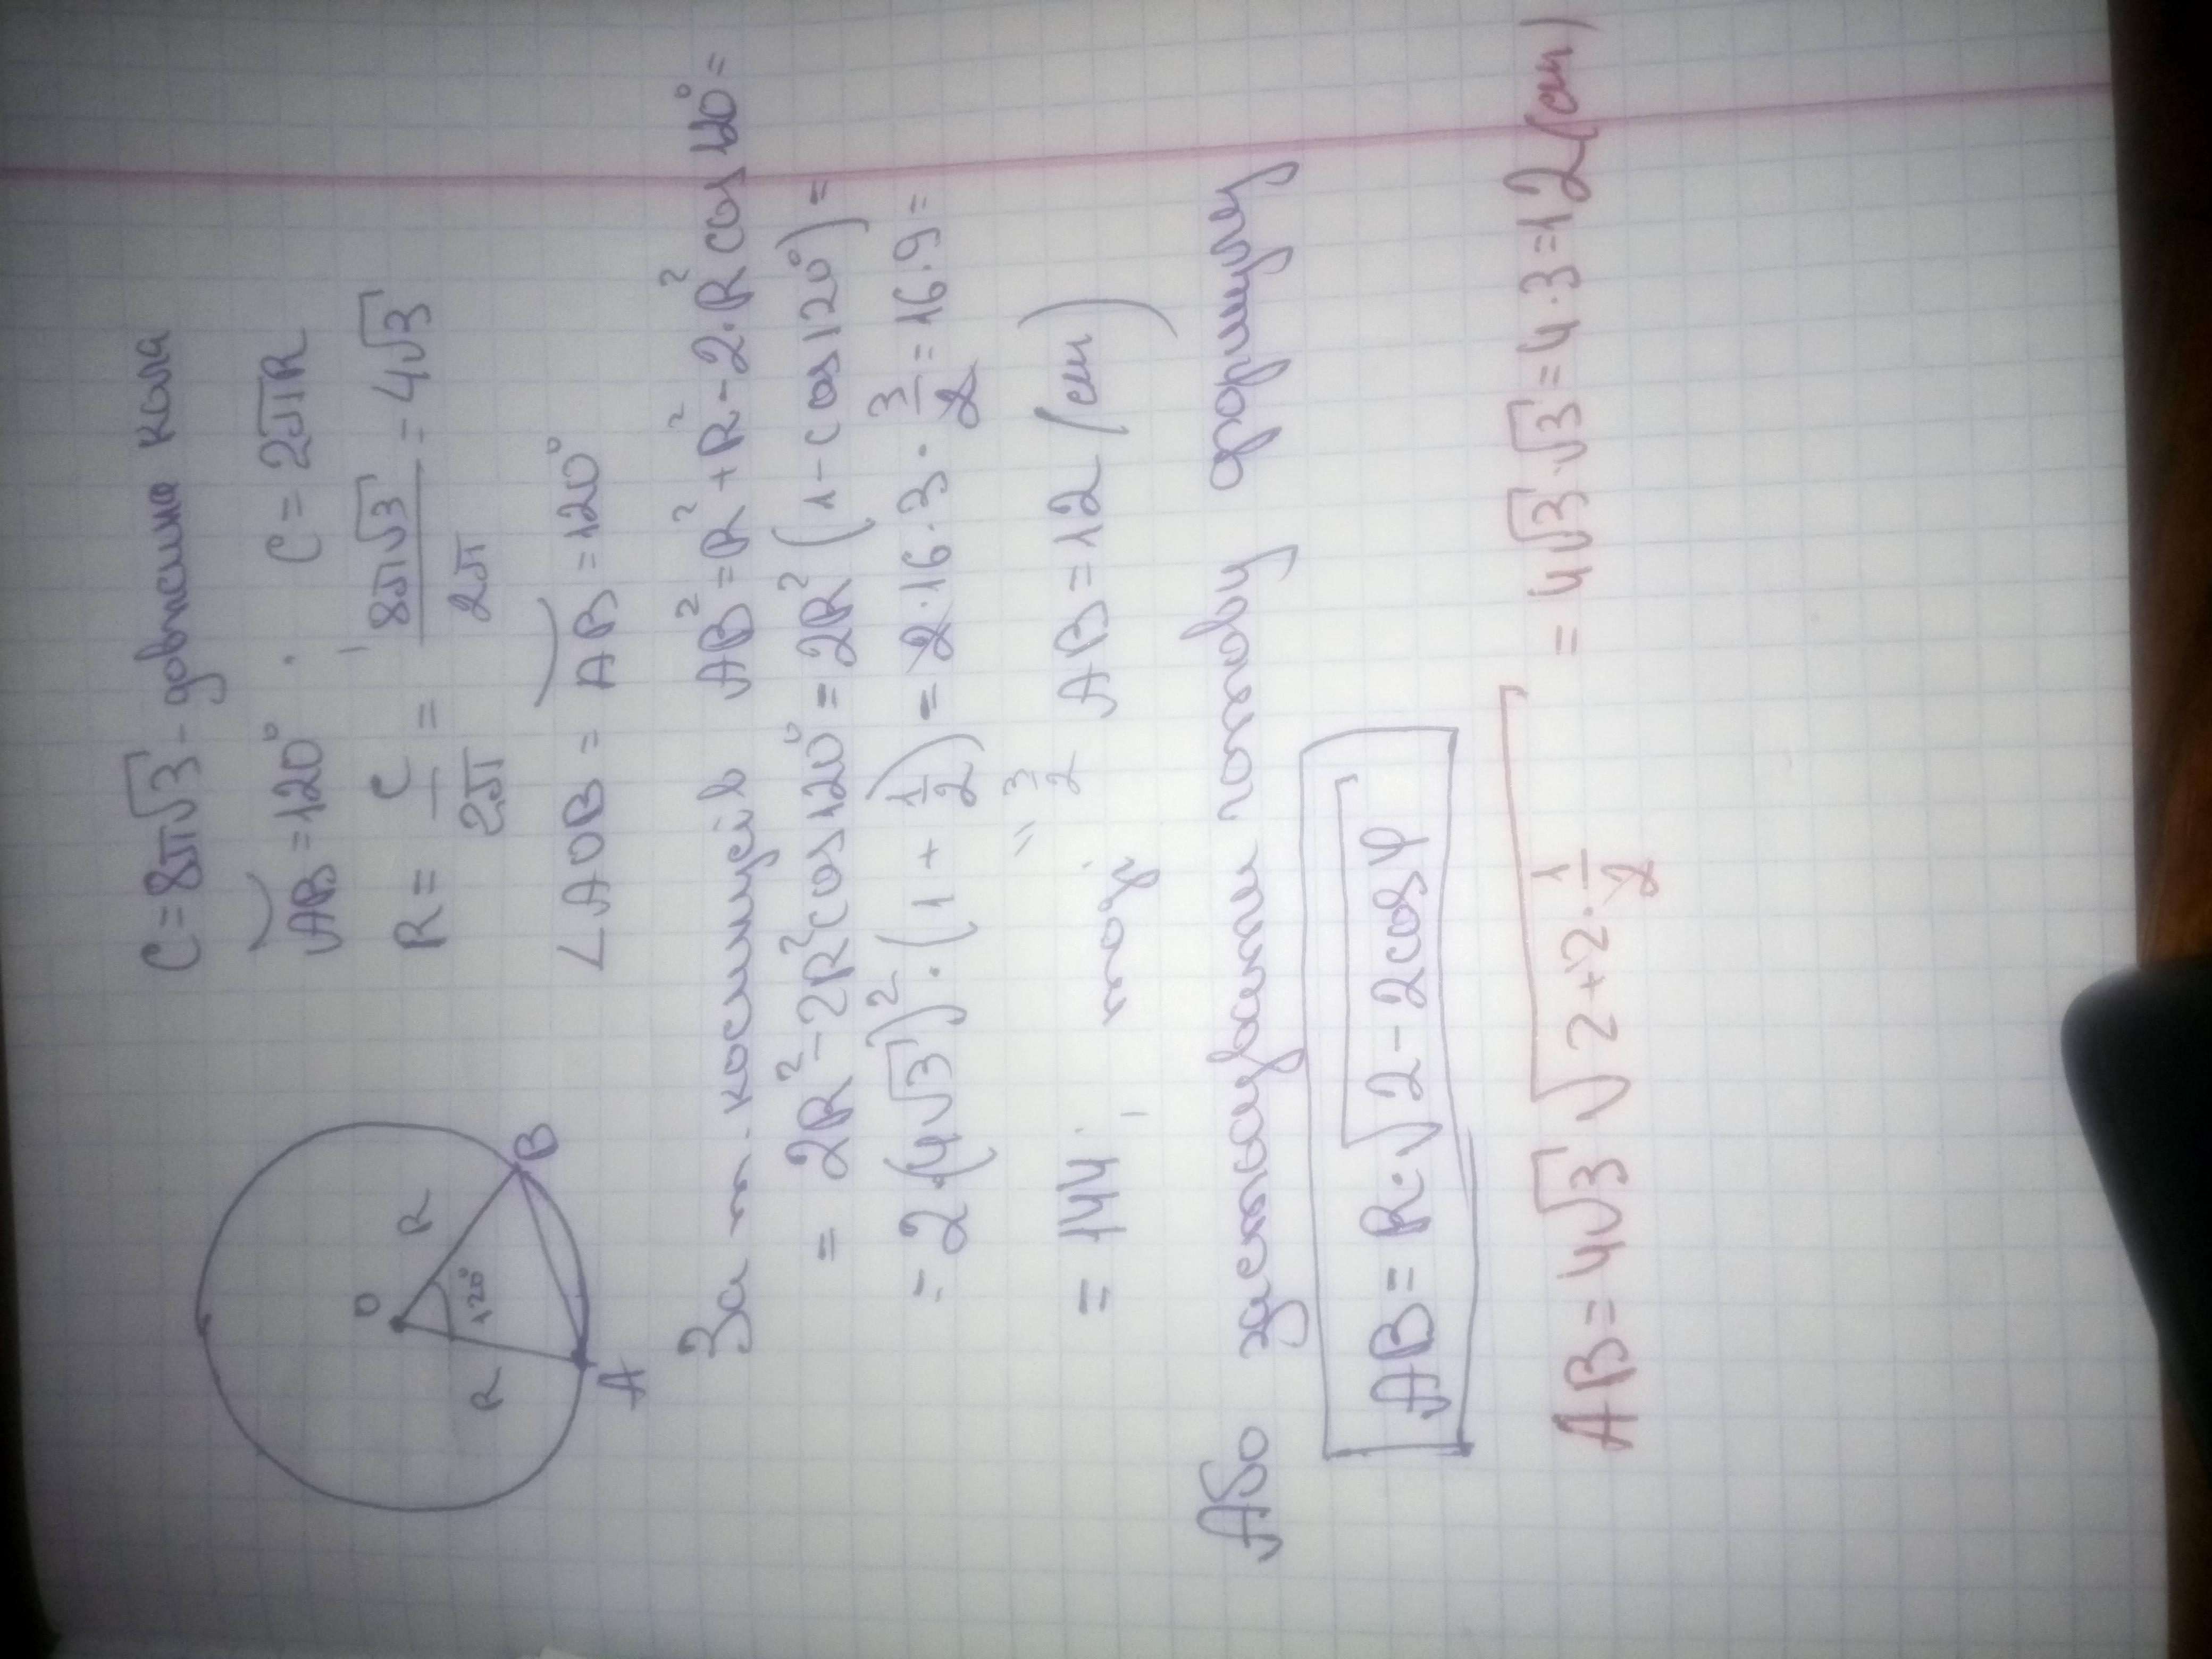 C = 8π√3 - довжина кола
◡AB = 120° C = 2πR
R = C/2π = 8π√3/2π = 4√3
∠AOB = ◡AB = 120°
O
R
R
120°
A
B
За т. косинусів AB² = R² + R² - 2·R² cos 120° =
= 2R² - 2R² cos 120° = 2R² (1 - cos 120°) =
= 2·(4√3)²·(1 + 1/2) = 2·16·3·3/2 = 16·9 =
" 3/2
= 144, тоді AB = 12 (см)
Або застосувати готову формулу
AB = R·√2 - 2cosφ
AB = 4√3 √2 + 2·1/2 = 4√3·√3 = 4·3 = 12 (см)